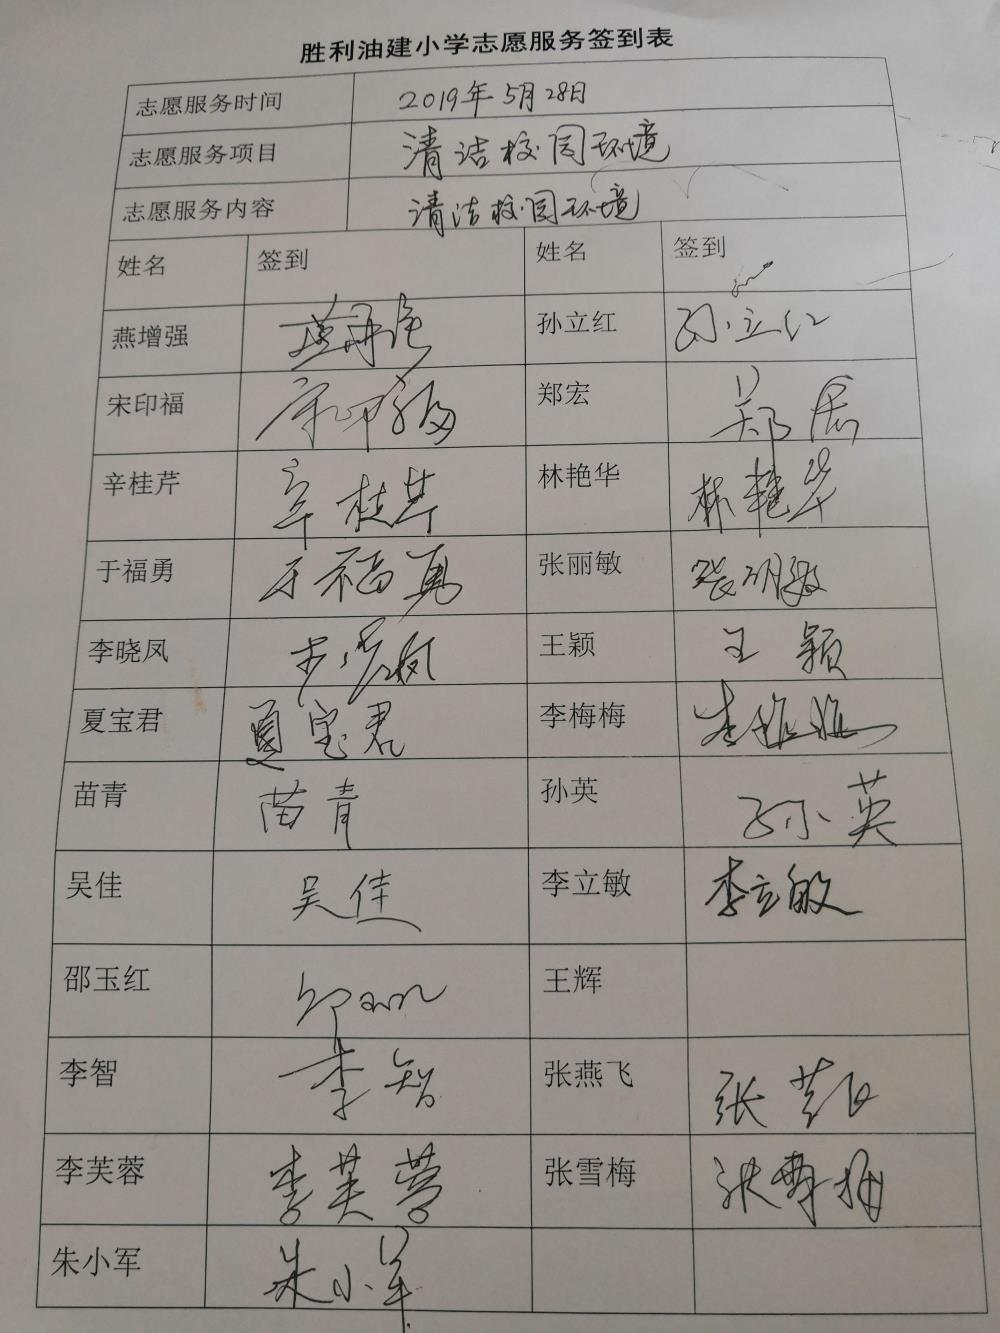 胜利油建小学志愿服务签到表
志愿服务时间 2019年5月28日
志愿服务项目 清洁校园环境
志愿服务内容 清洁校园环境
姓名 签到 姓名 签到
燕增强 孙立红 孙立红
宋印福 宋印福 郑宏 郑宏
辛桂芹 辛桂芹 林艳华 林艳华
于福勇 于福勇 张丽敏 张丽敏
李晓凤 李晓凤 王颖 王颖
夏宝君 夏宝君 李梅梅 李梅梅
苗青 苗青 孙英 孙英
吴佳 吴佳 李立敏 李立敏
邵玉红 邵玉红 王辉
李智 李智 张燕飞 张燕飞
李芙蓉 李芙蓉 张雪梅 张雪梅
朱小军 朱小军